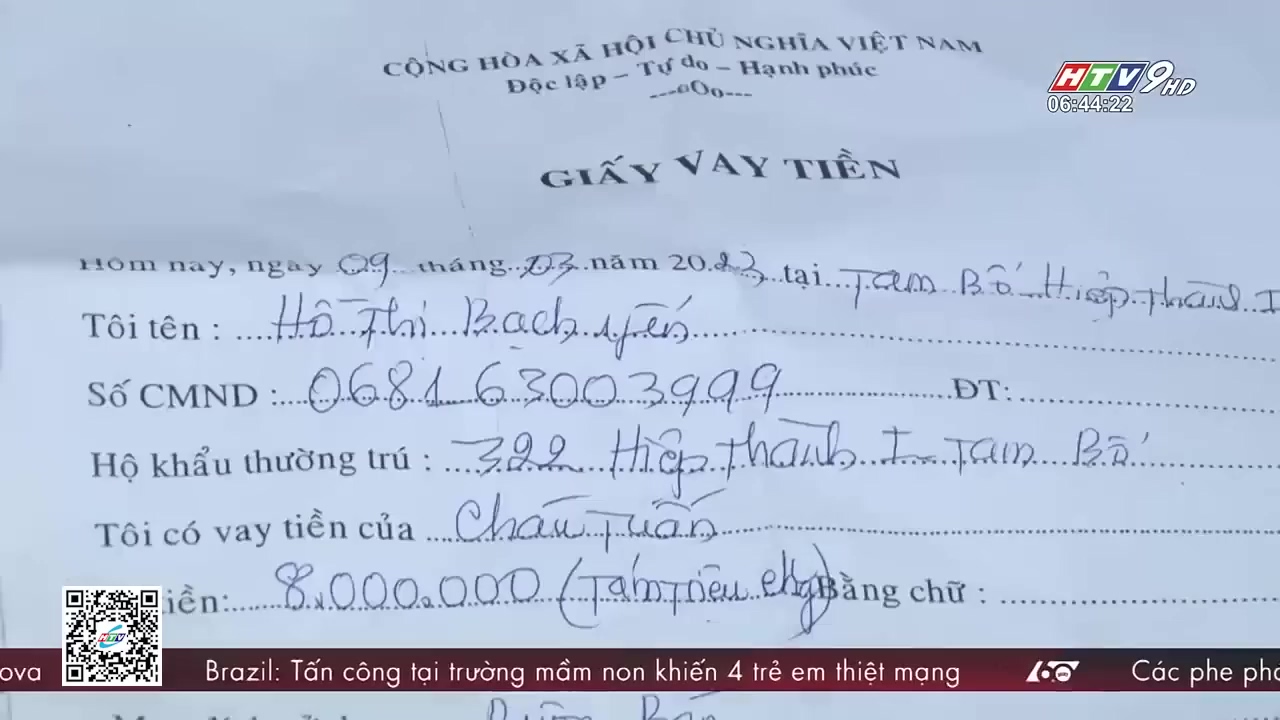 CỘNG HÒA XÃ HỘI CHỦ NGHĨA VIỆT NAM
Độc lập – Tự do – Hạnh phúc
---oOo---
HTV9 HD
06:44:22
GIẤY VAY TIỀN
Hôm nay, ngày 09 tháng 03 năm 2023 tại Tam Bố Hiệp Thành I
Tôi tên : Hồ Thị Bạch Yến
Số CMND : 068163003999 ĐT:
Hộ khẩu thường trú : 322 Hiệp Thành I Tam Bố
Tôi có vay tiền của Cháu Tuấn
iền: 8.000.000 (Tám Triệu đồng) Bằng chữ :
HTV
ova Brazil: Tấn công tại trường mầm non khiến 4 trẻ em thiệt mạng 60 giây Các phe phá